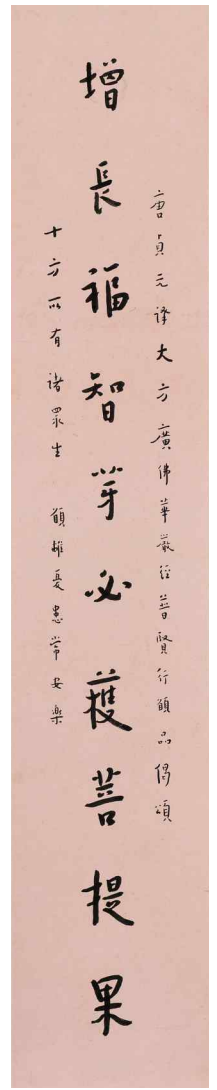 唐貞元譯大方廣佛華嚴經普賢行願品偈頌
增長福智芽必獲菩提果
十方所有諸眾生 願離憂患常安樂